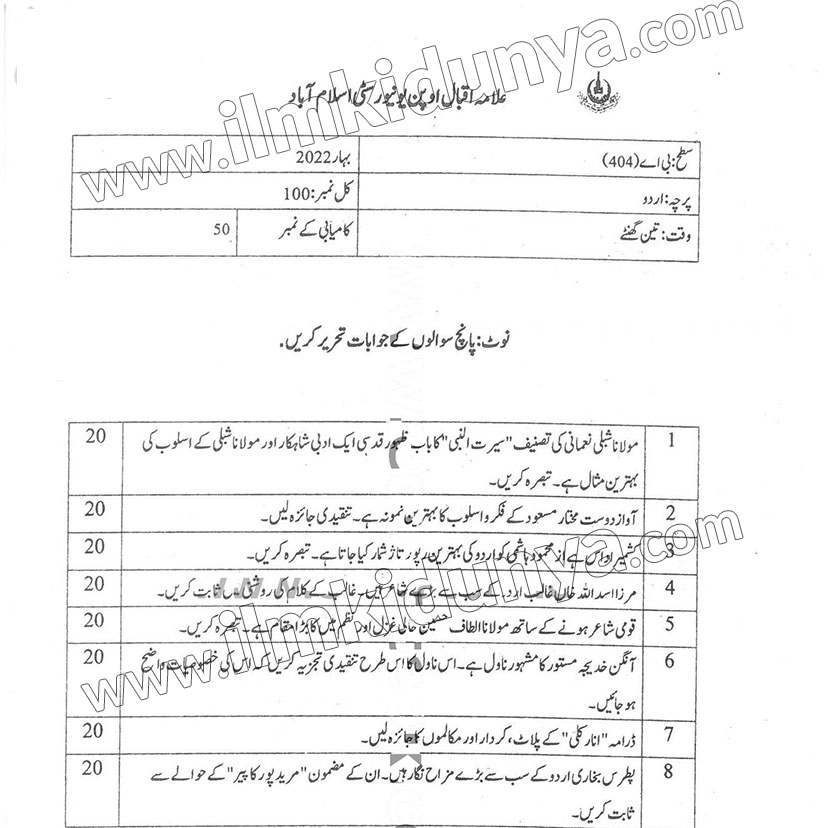 علامہ اقبال اوپن یونیورسٹی اسلام آباد
سطح: بی اے (404)
بہار 2022
پرچہ: اردو
کل نمبر: 100
وقت: تین گھنٹے
کامیابی کے نمبر
50
نوٹ: پانچ سوالوں کے جوابات تحریر کریں۔
1
مولانا شبلی نعمانی کی تصنیف "سیرت النبی" کا باب ظہور قدسی ایک ادبی شاہکار اور مولانا شبلی کے اسلوب کی
بہترین مثال ہے۔ تبصرہ کریں۔
20
2
آواز دوست مختار مسعود کے فکر و اسلوب کا بہترین نمونہ ہے۔ تنقیدی جائزہ لیں۔
20
3
کشمیر اداس ہے از محمود ہاشمی کو اردو کی بہترین رپورتاژ شمار کیا جاتا ہے۔ تبصرہ کریں۔
20
4
مرزا اسد اللہ خاں غالب اردو کے سب سے بڑے شاعر ہیں۔ غالب کے کلام کی روشنی میں ثابت کریں۔
20
5
قومی شاعر ہونے کے ساتھ مولانا الطاف حسین حالی غزل اور نظم میں کا بڑا مقام ہے۔ تبصرہ کریں۔
20
6
آنگن خدیجہ مستور کا مشہور ناول ہے۔ اس ناول کا اس طرح تنقیدی تجزیہ کریں کہ اس کی خصوصیات واضح
ہو جائیں۔
20
7
ڈرامہ "انارکلی" کے پلاٹ، کردار اور مکالموں کا جائزہ لیں۔
20
8
پطرس بخاری اردو کے سب سے بڑے مزاح نگار ہیں۔ ان کے مضمون "مرید پور کا پیر" کے حوالے سے
ثابت کریں۔
20
www.ilmkidunya.com
www.ilmkidunya.com